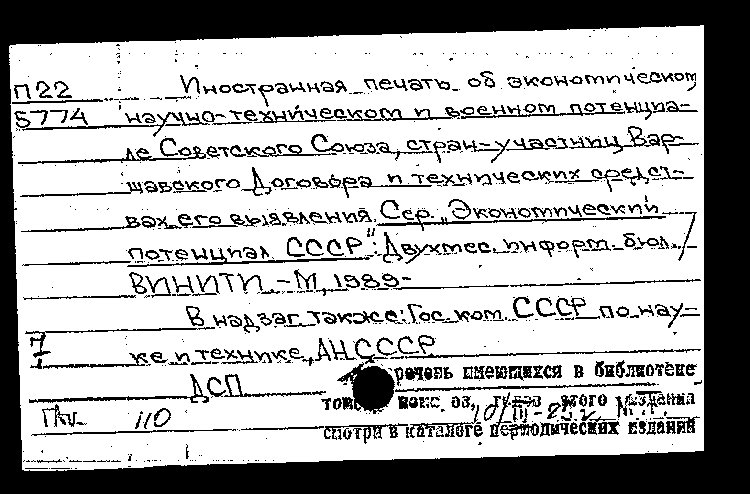 П22 Иностранная печать об экономическом
5774 научно-техническом и военном потенциа-
ле Советского Союза, стран-участниц Вар-
шавского Договора и технических средст-
вах его выявления. Сер. „Экономический
потенциал СССР": Двухмес. информ. бюл. /
ВИНИТИ. - М, 1989-
В надзаг. также: Гос. ком. СССР по нау-
ке и технике, АН СССР
ДСП
речень имеющихся в библиотеке
этого издания
110
смотри в каталоге периодических изданий